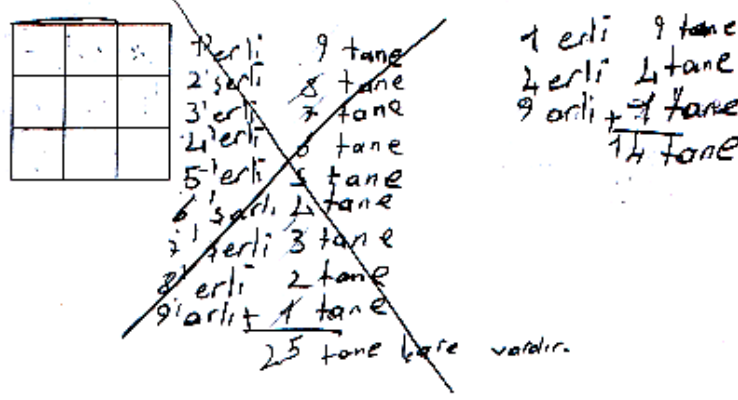 1'erli 9 tane
2'serli 8 tane
3'erli 7 tane
4'erli 6 tane
5'erli 5 tane
6'sarlı 4 tane
7'serli 3 tane
8'erli 2 tane
9'arlı + 1 tane
25 tane kare vardır.
1 erli 9 tane
4 erli 4 tane
9 arlı + 1 tane
14 tane